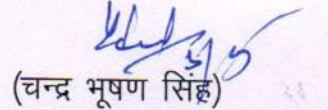 (चन्द्र भूषण सिंह)